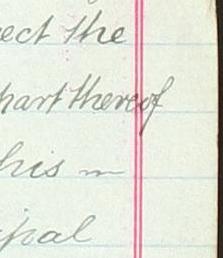 ect the
part thereof
his
ipal